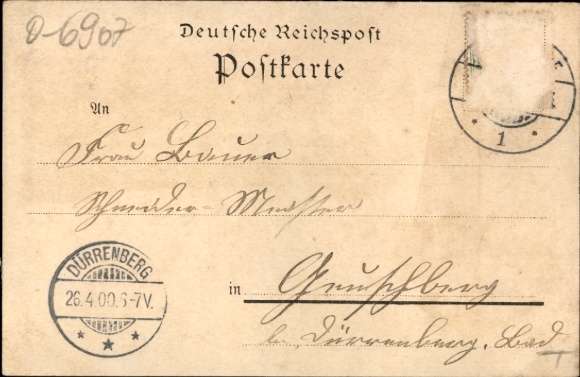 O-6907
Deutsche Reichspost
Postkarte
An
Frau Bauer
Schneider-Meister
in Geuschberg
b. Dürrenberg, Bad
DÜRRENBERG
26.4.00.6-7V.
* * *
* 1 *